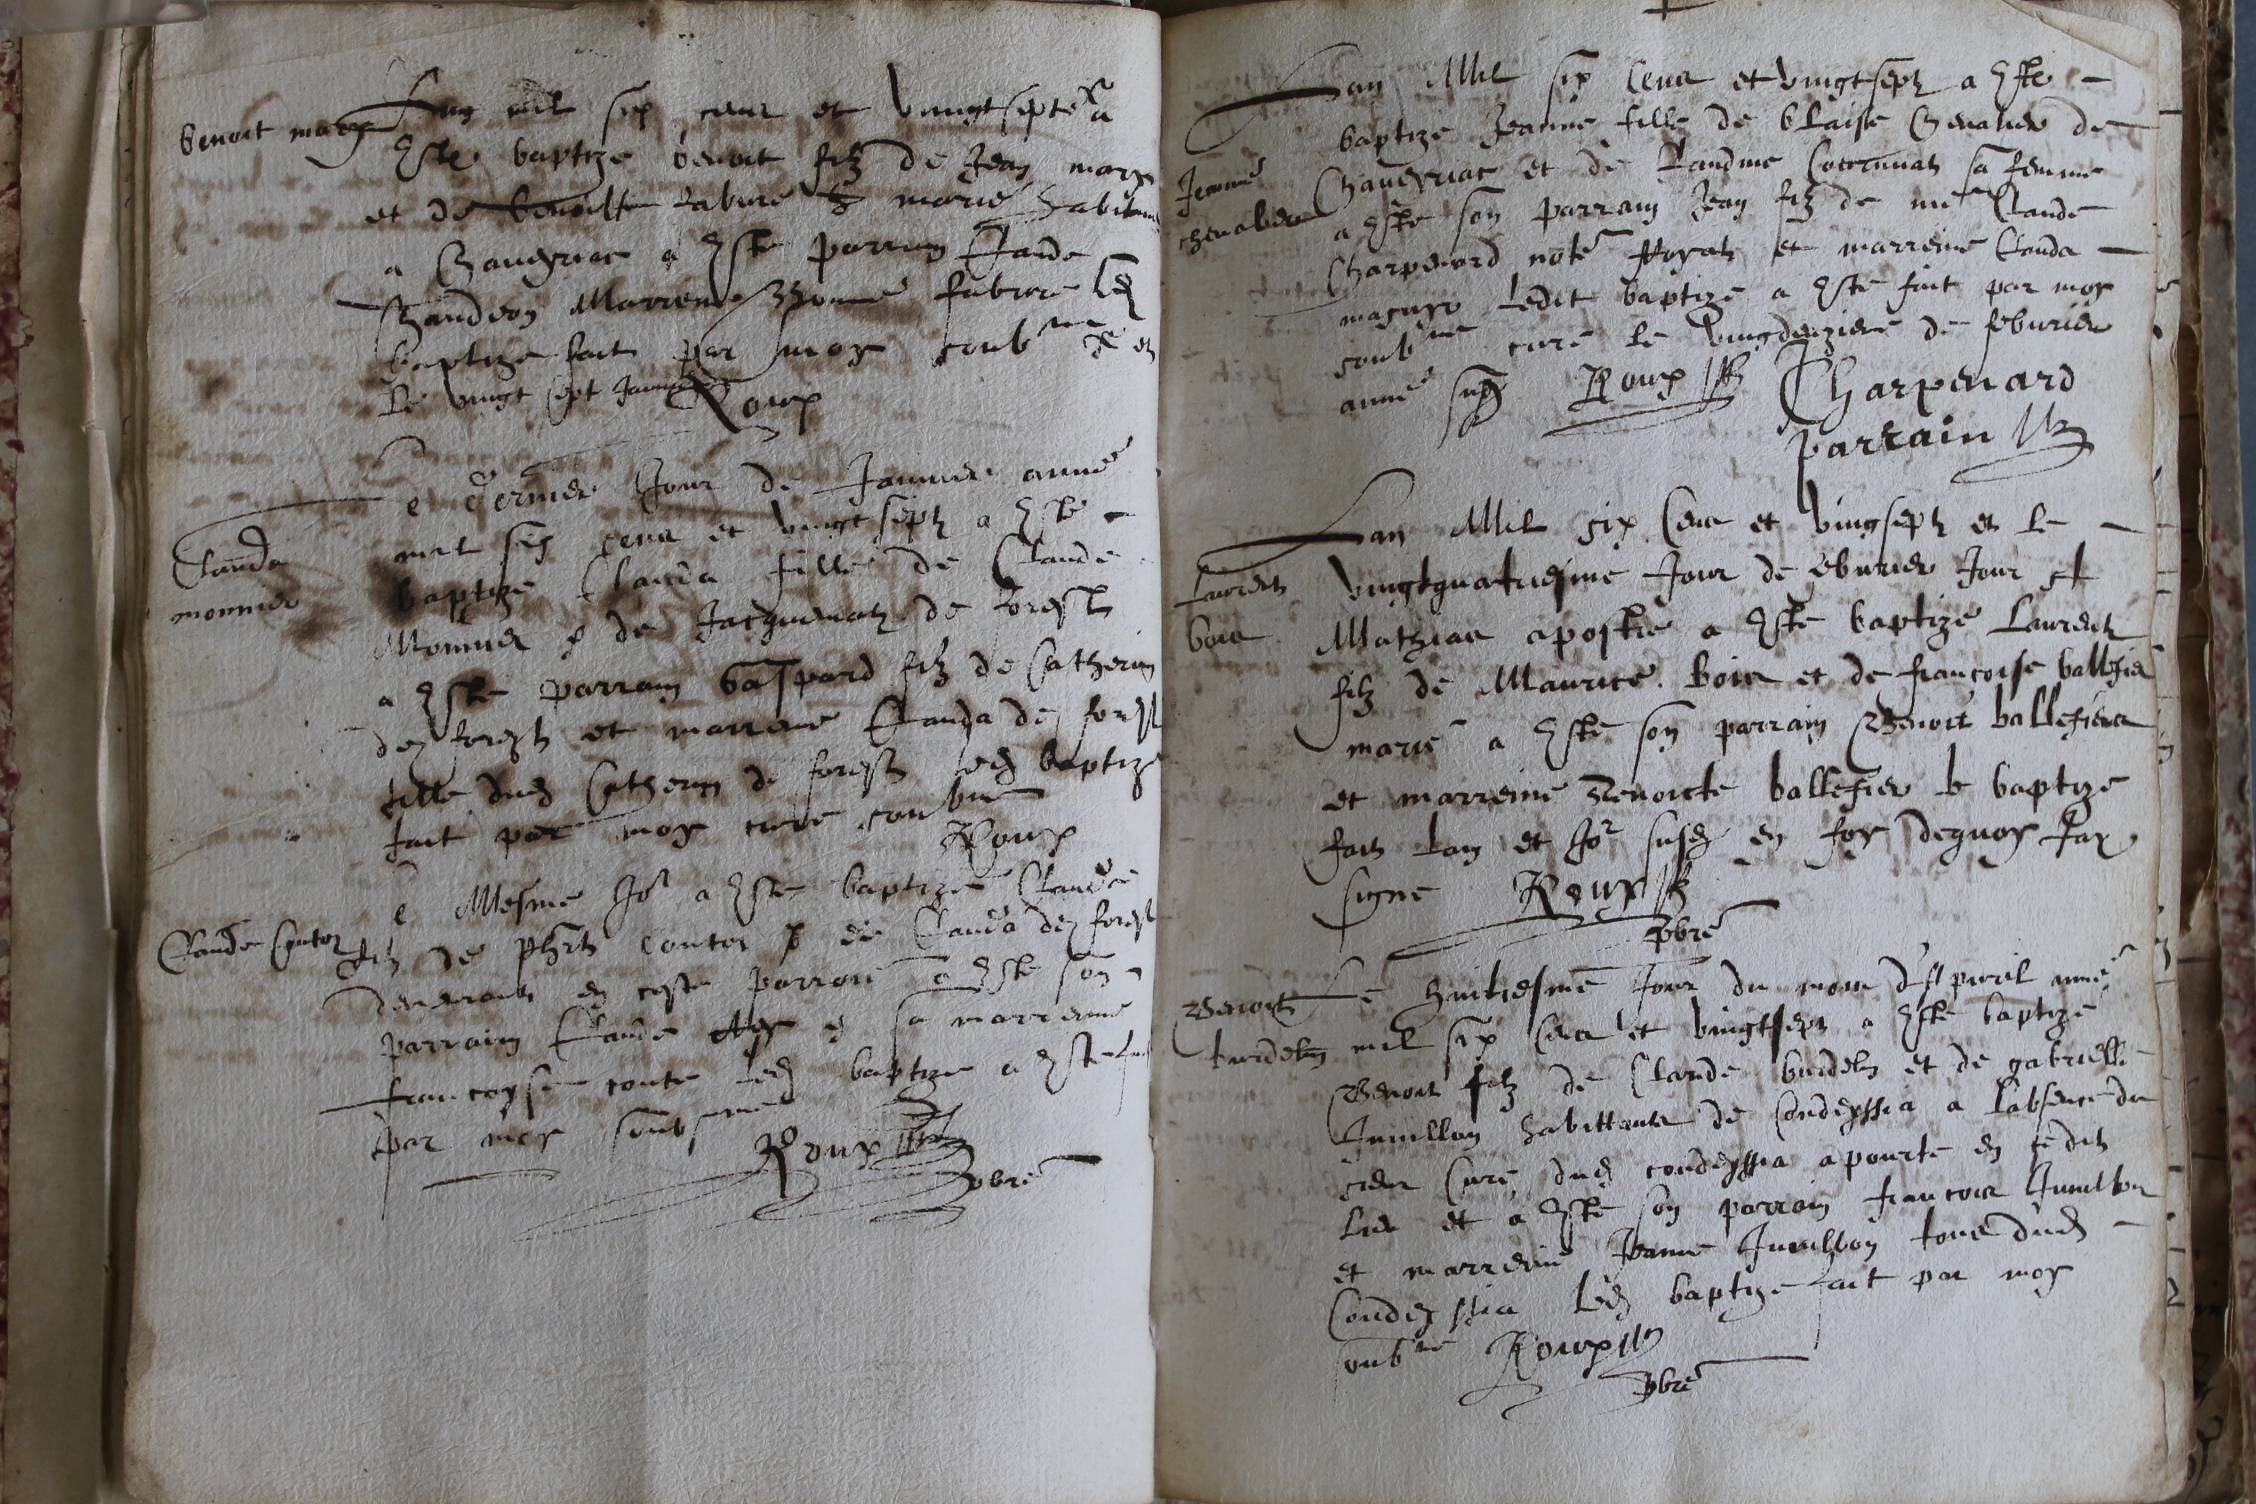 benoit marx
Lan mil six cens et vingtsept a
Este baptize benoit filz de Jean marx
et de benoitte fabvre marie habitans
a Chaveyriac a Este parrain Claude
Chandon Marreine fabvre led
baptize fait par moy soubne
le vingt sept Janvier Roux
Clauda
monnier
Le dernier Jour de Janvier anne
mil six cens et vingt sept a Este
baptize Clauda fille de Claude
Monnier & de Jacquemat de forest
a Este parrain Gaspard filz de Catherin
de forest et marreine Clauda de forest
fille dud Catherin de forest led baptize
fait par moy cure soubne
Roux
Claude Contet
Le Mesme Jor a Este baptize Claude
filz de Contet & de Clauda de forest
demeurans en ceste parroisse a Este son
parrain Claude & sa marreine
francoyse conte led baptize a Este fait
par moy soubsne
Roux
pbre
Jeanne
chevalier
Lan Mil six Cens et vingtsept a Este
baptize Jeanne fille de blaise Chevalier de
Chaveyriac et de Claudine sa femme
a Este son parrain Jean filz de me Claude
Charpenard notre Royal et marreine Clauda
ledit baptize a Este fait par moy
soubne cure le vingdeuziere de febvrier
anne susd Roux Charpenard
parrain
Laurent
bois
Lan Mil six Cens et vingsept et le
vingtquatriesme Jour de febvrier Jour st
Mathias apostre a Este baptize Laurent
filz de Maurice bois et de francoise ballefier
marie a Este son parrain Benoit ballefier
et marreine Benoicte ballefier le baptize
fait lan et Jor susd en foy dequoy Jay
signe Roux
pbre
Benoit
burdet
Le huictiesme Jour du mois d'Apvril anne
mil six cens et vingtsept a Este baptize
Benoit filz de Claude burdet et de gabrielle
Juvillon habittans de Condeyssia a l'absence du
sieur Cure dud condeyssia apourte en ce dit
lieu et a Este son parrain francois Juvillon
et marreine Jeanne Juvillon tous dud
Condeyssia led baptize fait par moy
soubne Roux
pbre